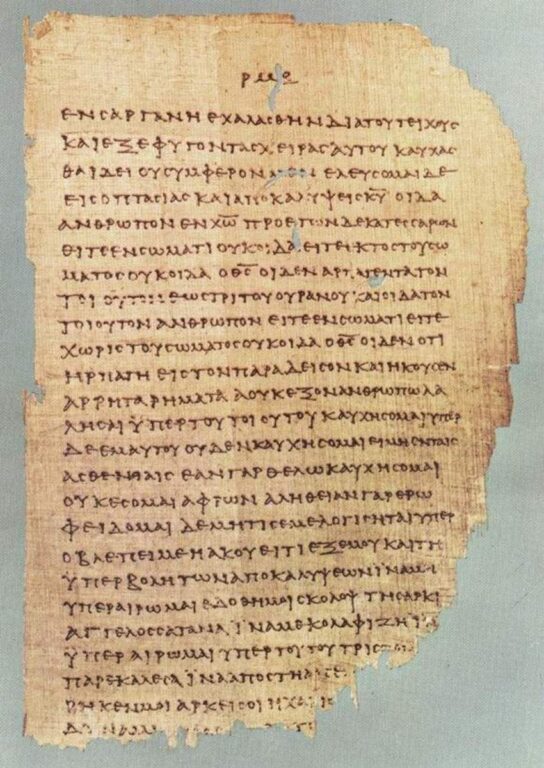 ΕΝ ΣΑΡΓΑΝΗ ΕΧΑΛΑΣΘΗΝ ΔΙΑ ΤΟΥ ΤΕΙΧΟΥΣ
ΚΑΙ ΕΞΕΦΥΓΟΝ ΤΑΣ ΧΕΙΡΑΣ ΑΥΤΟΥ ΚΑΥΧΑΣ
ΘΑΙ ΔΕΙ ΟΥ ΣΥΜΦΕΡΟΝ ΕΛΕΥΣΟΜΑΙ ΔΕ
ΕΙΣ ΟΠΤΑΣΙΑΣ ΚΑΙ ΑΠΟΚΑΛΥΨΕΙΣ ΚΥ ΟΙΔΑ
ΑΝΘΡΩΠΟΝ ΕΝ ΧΩ ΠΡΟ ΕΤΩΝ ΔΕΚΑΤΕΣΣΑΡΩΝ
ΕΙΤΕ ΕΝ ΣΩΜΑΤΙ ΟΥΚ ΟΙΔΑ ΕΙΤΕ ΕΚΤΟΣ ΤΟΥ ΣΩ
ΜΑΤΟΣ ΟΥΚ ΟΙΔΑ Ο ΘΣ ΟΙΔΕΝ ΑΡΠΑΓΕΝΤΑ ΤΟΝ
ΤΟΙΟΥΤΟΝ ΕΩΣ ΤΡΙΤΟΥ ΟΥΡΑΝΟΥ ΚΑΙ ΟΙΔΑ ΤΟΝ
ΤΟΙΟΥΤΟΝ ΑΝΘΡΩΠΟΝ ΕΙΤΕ ΕΝ ΣΩΜΑΤΙ ΕΙΤΕ
ΧΩΡΙΣ ΤΟΥ ΣΩΜΑΤΟΣ ΟΥΚ ΟΙΔΑ Ο ΘΣ ΟΙΔΕΝ ΟΤΙ
ΗΡΠΑΓΗ ΕΙΣ ΤΟΝ ΠΑΡΑΔΕΙΣΟΝ ΚΑΙ ΗΚΟΥΣΕΝ
ΑΡΡΗΤΑ ΡΗΜΑΤΑ Α ΟΥΚ ΕΞΟΝ ΑΝΘΡΩΠΩ ΛΑ
ΛΗΣΑΙ ΫΠΕΡ ΤΟΥ ΤΟΙΟΥΤΟΥ ΚΑΥΧΗΣΟΜΑΙ ΥΠΕΡ
ΔΕ ΕΜΑΥΤΟΥ ΟΥΔΕΝ ΚΑΥΧΗΣΟΜΑΙ ΕΙ ΜΗ ΕΝ ΤΑΙΣ
ΑΣΘΕΝΙΑΙΣ ΕΑΝ ΓΑΡ ΘΕΛΩ ΚΑΥΧΗΣΟΜΑΙ
ΟΥΚ ΕΣΟΜΑΙ ΑΦΡΩΝ ΑΛΗΘΕΙΑΝ ΓΑΡ ΕΡΩ
ΦΕΙΔΟΜΑΙ ΔΕ ΜΗ ΤΙΣ ΕΜΕ ΛΟΓΙΣΗΤΑΙ ΥΠΕΡ
Ο ΒΛΕΠΕΙ ΜΕ Η ΑΚΟΥΕΙ ΤΙ ΕΞ ΕΜΟΥ ΚΑΙ ΤΗ
ΫΠΕΡΒΟΛΗ ΤΩΝ ΑΠΟΚΑΛΥΨΕΩΝ ΪΝΑ ΜΗ
ΥΠΕΡΑΙΡΩΜΑΙ ΕΔΟΘΗ ΜΟΙ ΣΚΟΛΟΨ ΤΗ ΣΑΡΚΙ
ΑΓΓΕΛΟΣ ΣΑΤΑΝΑ ΪΝΑ ΜΕ ΚΟΛΑΦΙΖΗ Ϊ
ΫΠΕΡΑΙΡΩΜΑΙ ΥΠΕΡ ΤΟΥΤΟΥ ΤΡΙΣ
ΠΑΡΕΚΑΛΕΣΑ ΪΝΑ ΑΠΟΣΤΗ
ΡΗΚΕΝ ΜΟΙ ΑΡΚΕΙ ΣΟΙ Η ΧΑΡΙΣ